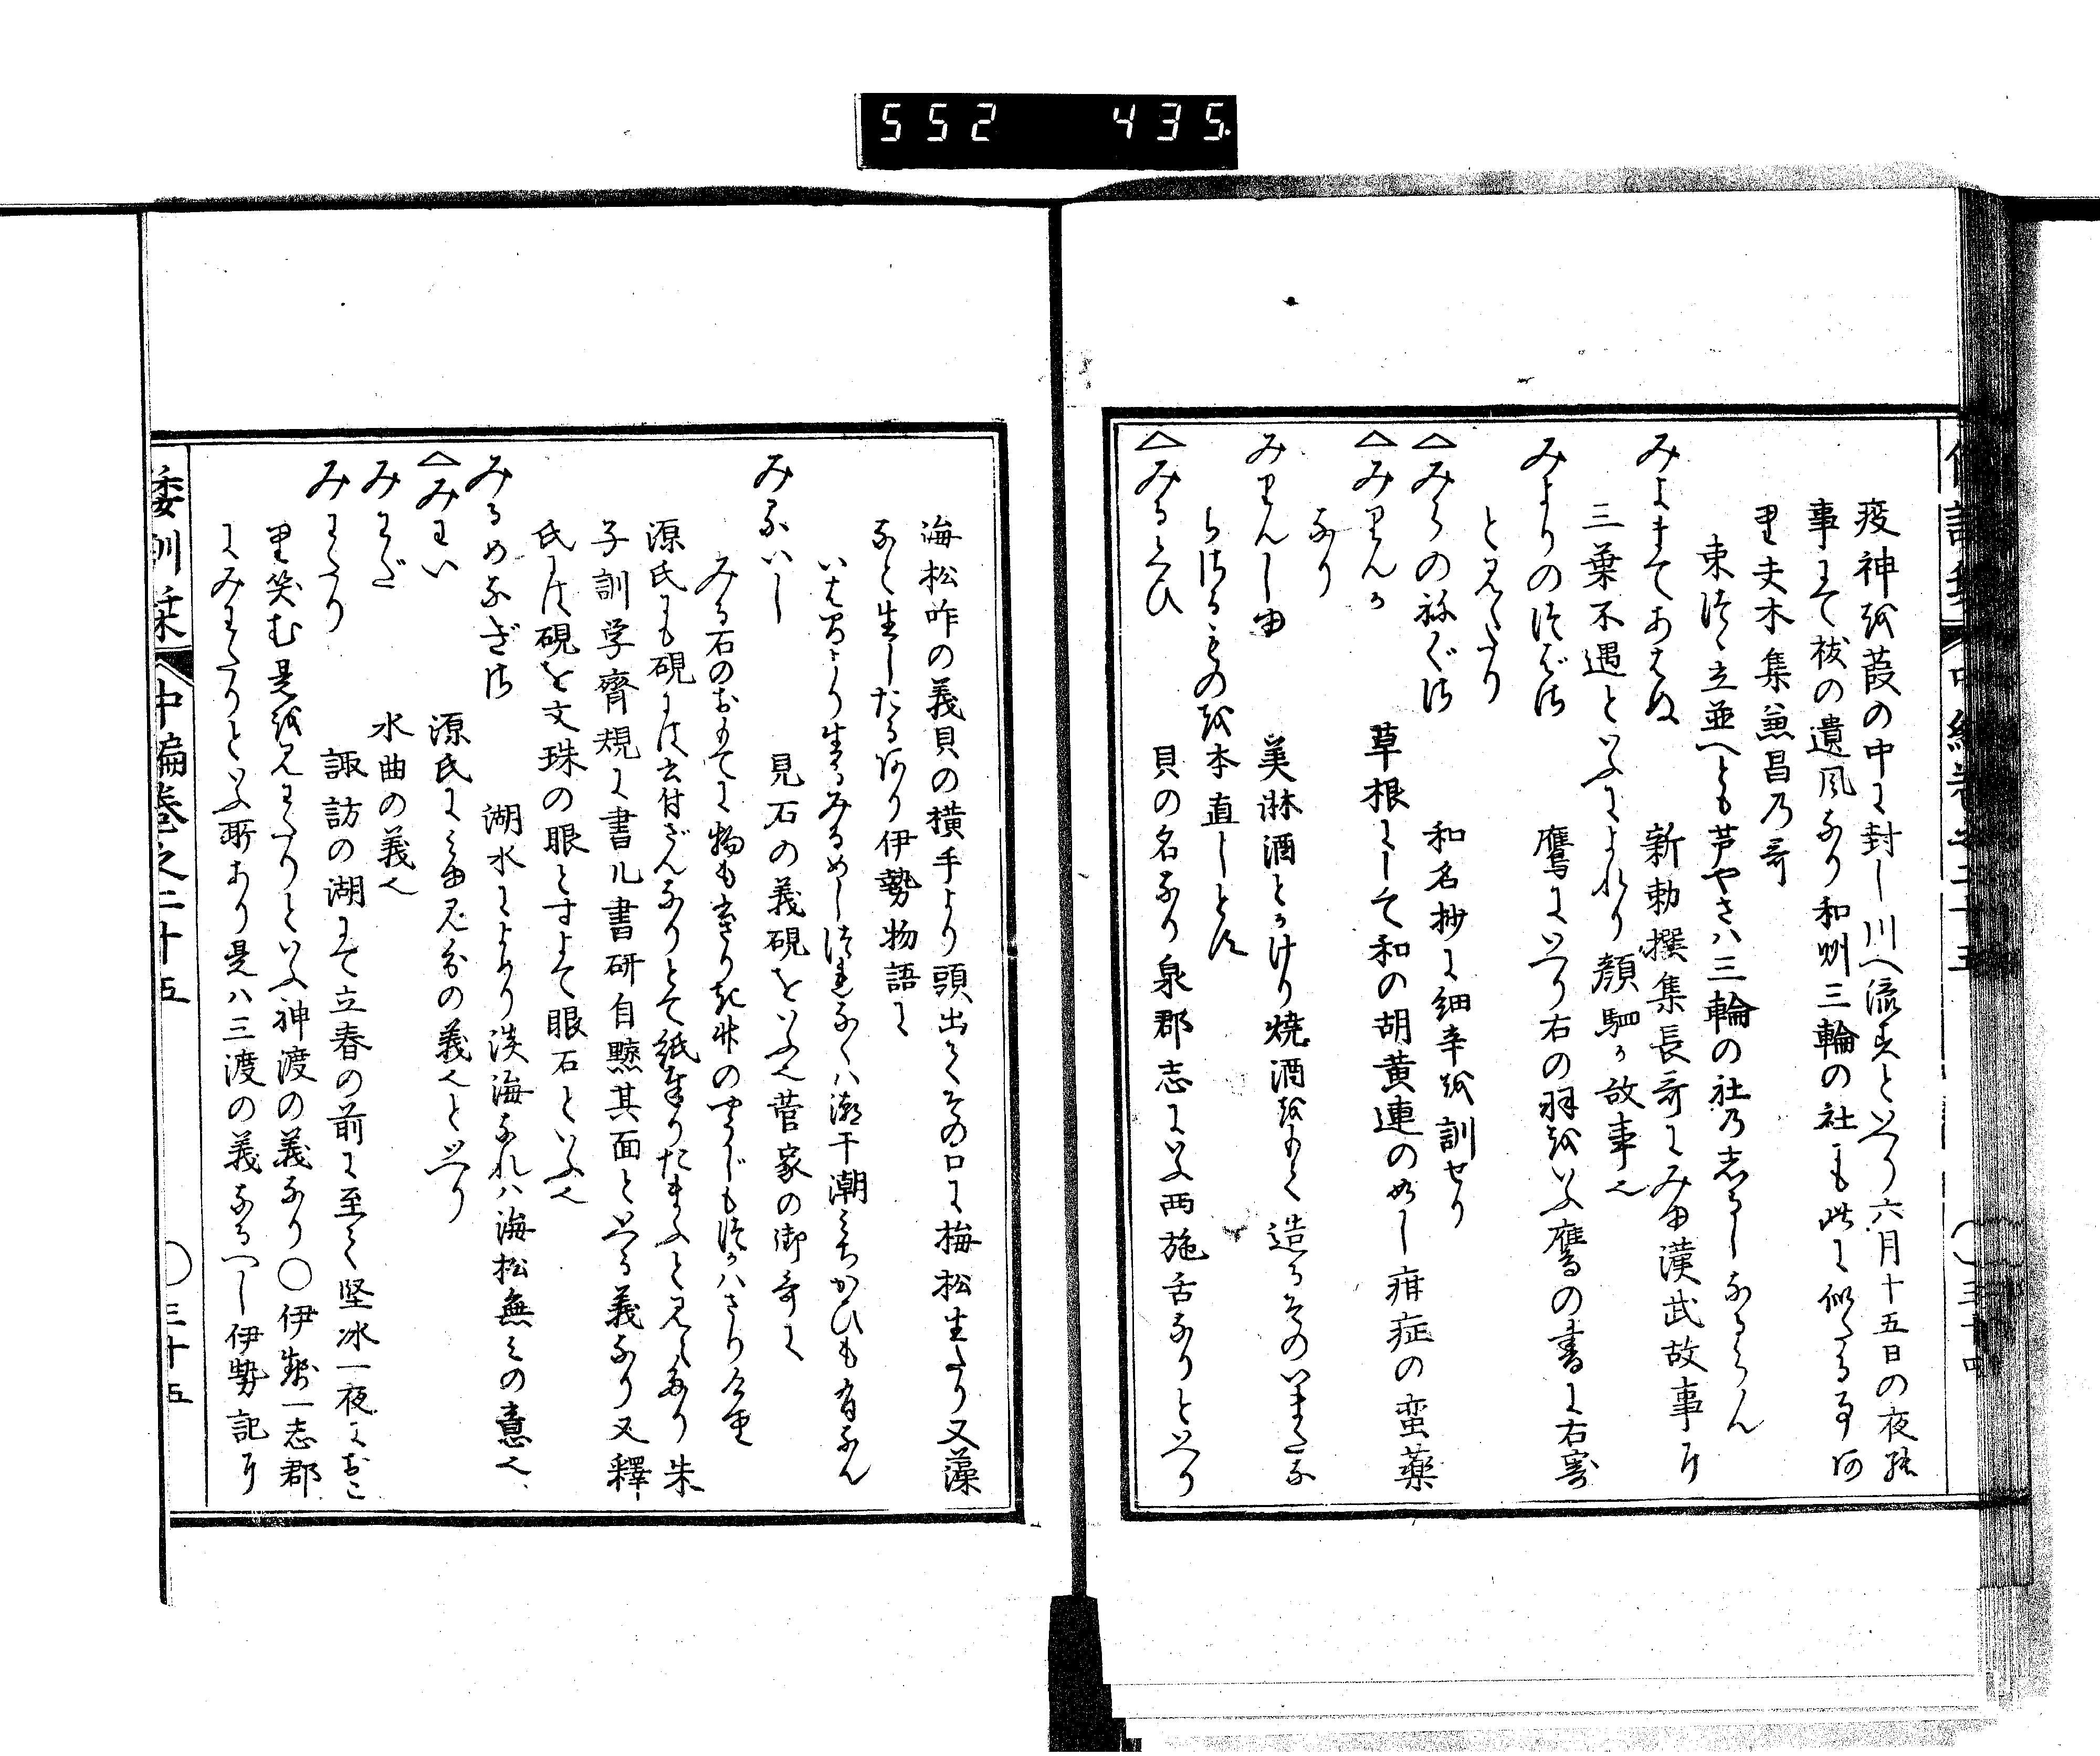 552 435
疫神を葭の中に封し川へ流すといへり六月十五日の夜
事にて祓の遺風なり和州三輪の社にも此に似たる事あ
り夫木集兼昌の哥
束つゝ立並へとも芦やさハ三輪の社のしるしなるらん
みよまてあはぬ 新勅撰集長哥にみゆ漢武故事に
三葉不遇といふによれり顔駟か故事也
みよりのつばさ 鷹にいへり右の羽をいふ鷹の書に右
と見えたり
△みらのねぐさ 和名抄に細辛を訓せり
△みりんか 草根にして和の胡黄連の如し疳症の蛮薬
なり
みりんしゆ 美淋酒とかけり焼酒をもて造るそのいまたな
らさるものを本直しとす
△みるくひ 貝の名なり泉郡志にハ西施舌なりといへり
海松咋の義貝の横手より頭出てその口に梅松生たり又藻
なと生したるあり伊勢物語に
いはまより生るみるめしつれなくハ潮干潮みちかひも有なん
みるいし 見石の義硯をいふ也菅家の御哥に
みる石のおもてに物もかきり
源氏にも硯にハ付ざんなりとて紙奉りたまふと見えたり朱
子訓学齊規に書几書研自黥其面といへる義なり又釋
氏にハ硯を文珠の眼とすよて眼石といふ也
みるめなぎさ 湖水によめり淡海なれハ海松無みの意也
△みわい 源氏にみゆ の義也といへり
みわだ 水曲の義也
みわたり 諏訪の湖にて立春の前に至て堅冰一夜に
里笑む是を見わたりといふ神渡の義なり〇伊勢一志郡
にみわたりといふ所あり是ハ三渡の義なるへし伊勢記に
倭訓栞 中編巻之二十五 〇三十五